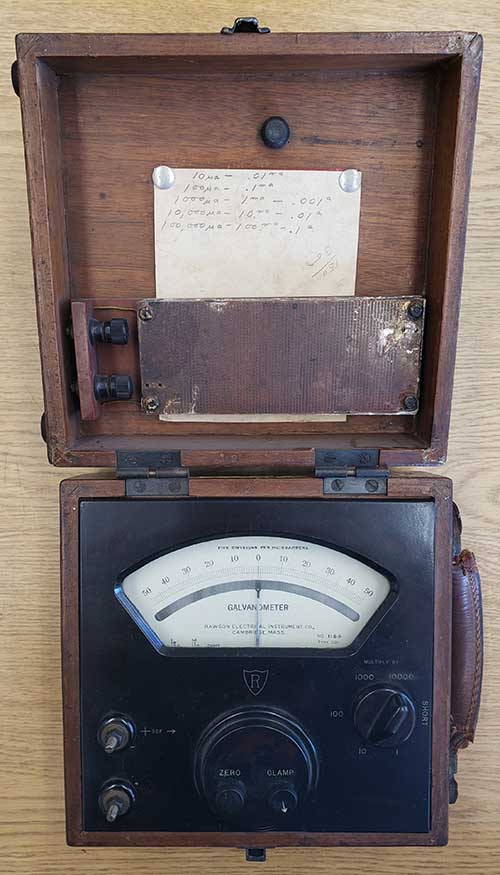 10µa - .01ma
100µa - .1ma
1000µa - 1ma - .001a
10,000µa - 10ma - .01a
100,000µa - 100ma - .1a
FIVE DIVISIONS PER MICROAMPERE
50 40 30 20 10 0 10 20 30 40 50
GALVANOMETER
RAWSON ELECTRICAL INSTRUMENT CO.,
CAMBRIDGE, MASS.
NO.
TYPE
R
MULTIPLY BY
1000 10000
100
SHORT
10 1
+
ZERO CLAMP